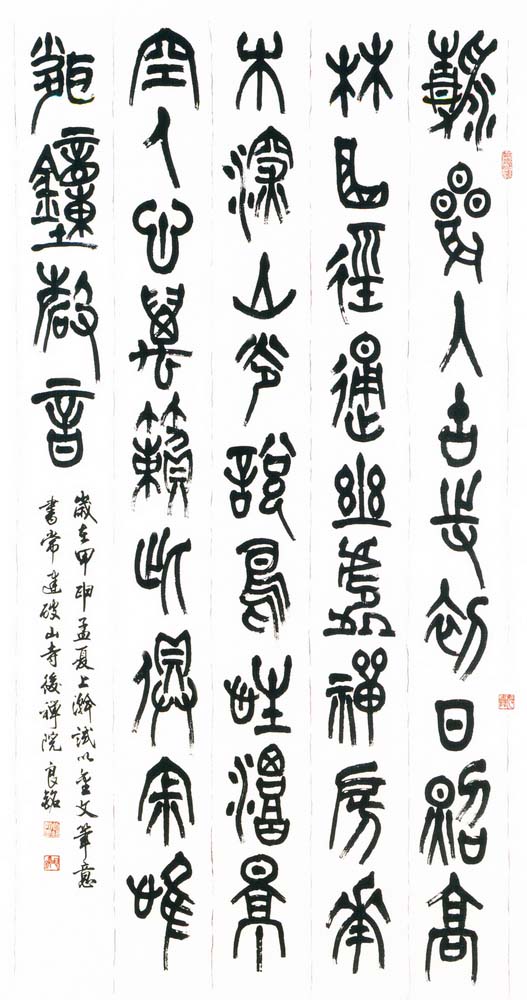 清晨入古寺初日照高
林曲徑通幽處禪房花
木深山光說鳥性潭景
空人心萬籟此俱寂唯
聞鐘磬音
歲在甲申孟夏上澣試以金文筆意
書常建破山寺後禪院 良銘